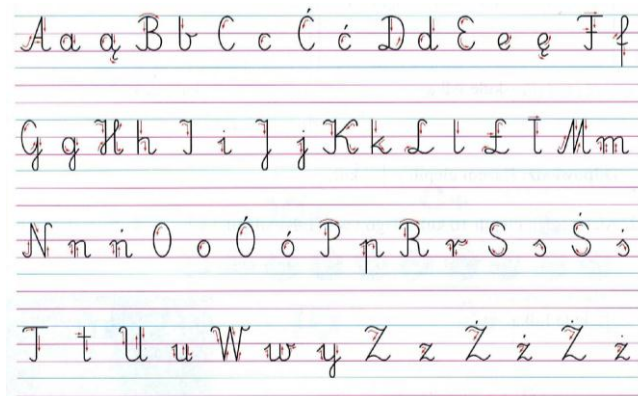 A a ą B b C c Ć ć D d E e ę F f
G g H h I i J j K k L l Ł ł M m
N n ń O o Ó ó P p R r S s Ś ś
T t U u W w y Z z Ż ż Ź ź